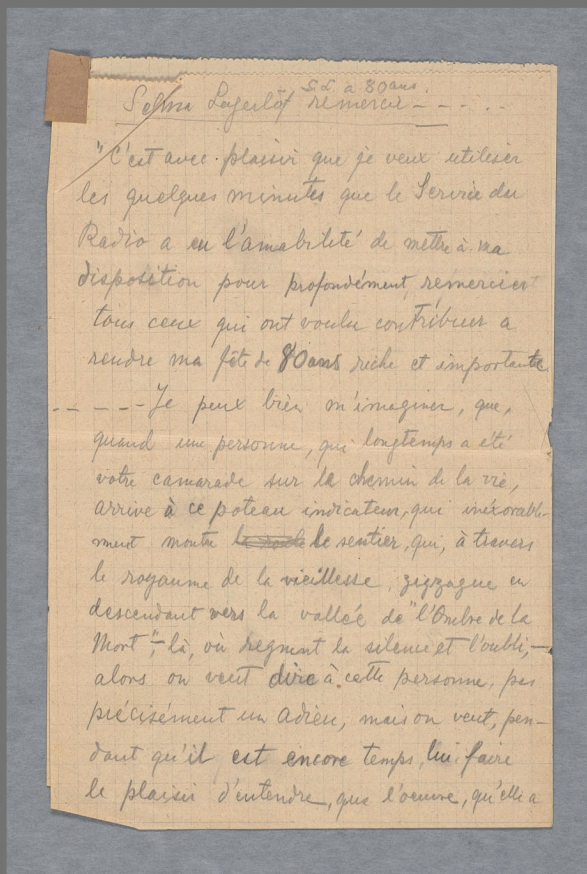 S.L. à 80 ans.
Selma Lagerlöf remercie - - - - -
"C'est avec plaisir que je veux utiliser
les quelques minutes que le Service du
Radio a eu l'amabilité de mettre à ma
disposition pour profondément remercier
tous ceux qui ont voulu contribuer a
rendre ma fête de 80 ans riche et importante
- - - - - Je peux bien m'imaginer, que,
quand une personne, qui longtemps a été
votre camarade sur la chemin de la vie,
arrive à ce poteau indicateur, qui inéxorable-
ment montre le sentier, qui, à travers
le royaume de la vieillesse, zigzague en
descendant vers la vallée de "l'Ombre de la
Mort", - là, où regnent la silence et l'oubli, -
alors on veut dire à cette personne, pas
précisément un adieu, mais on veut, pen-
dant qu'il est encore temps, lui faire
le plaisir d'entendre, que l'oeuvre, qu'elle a